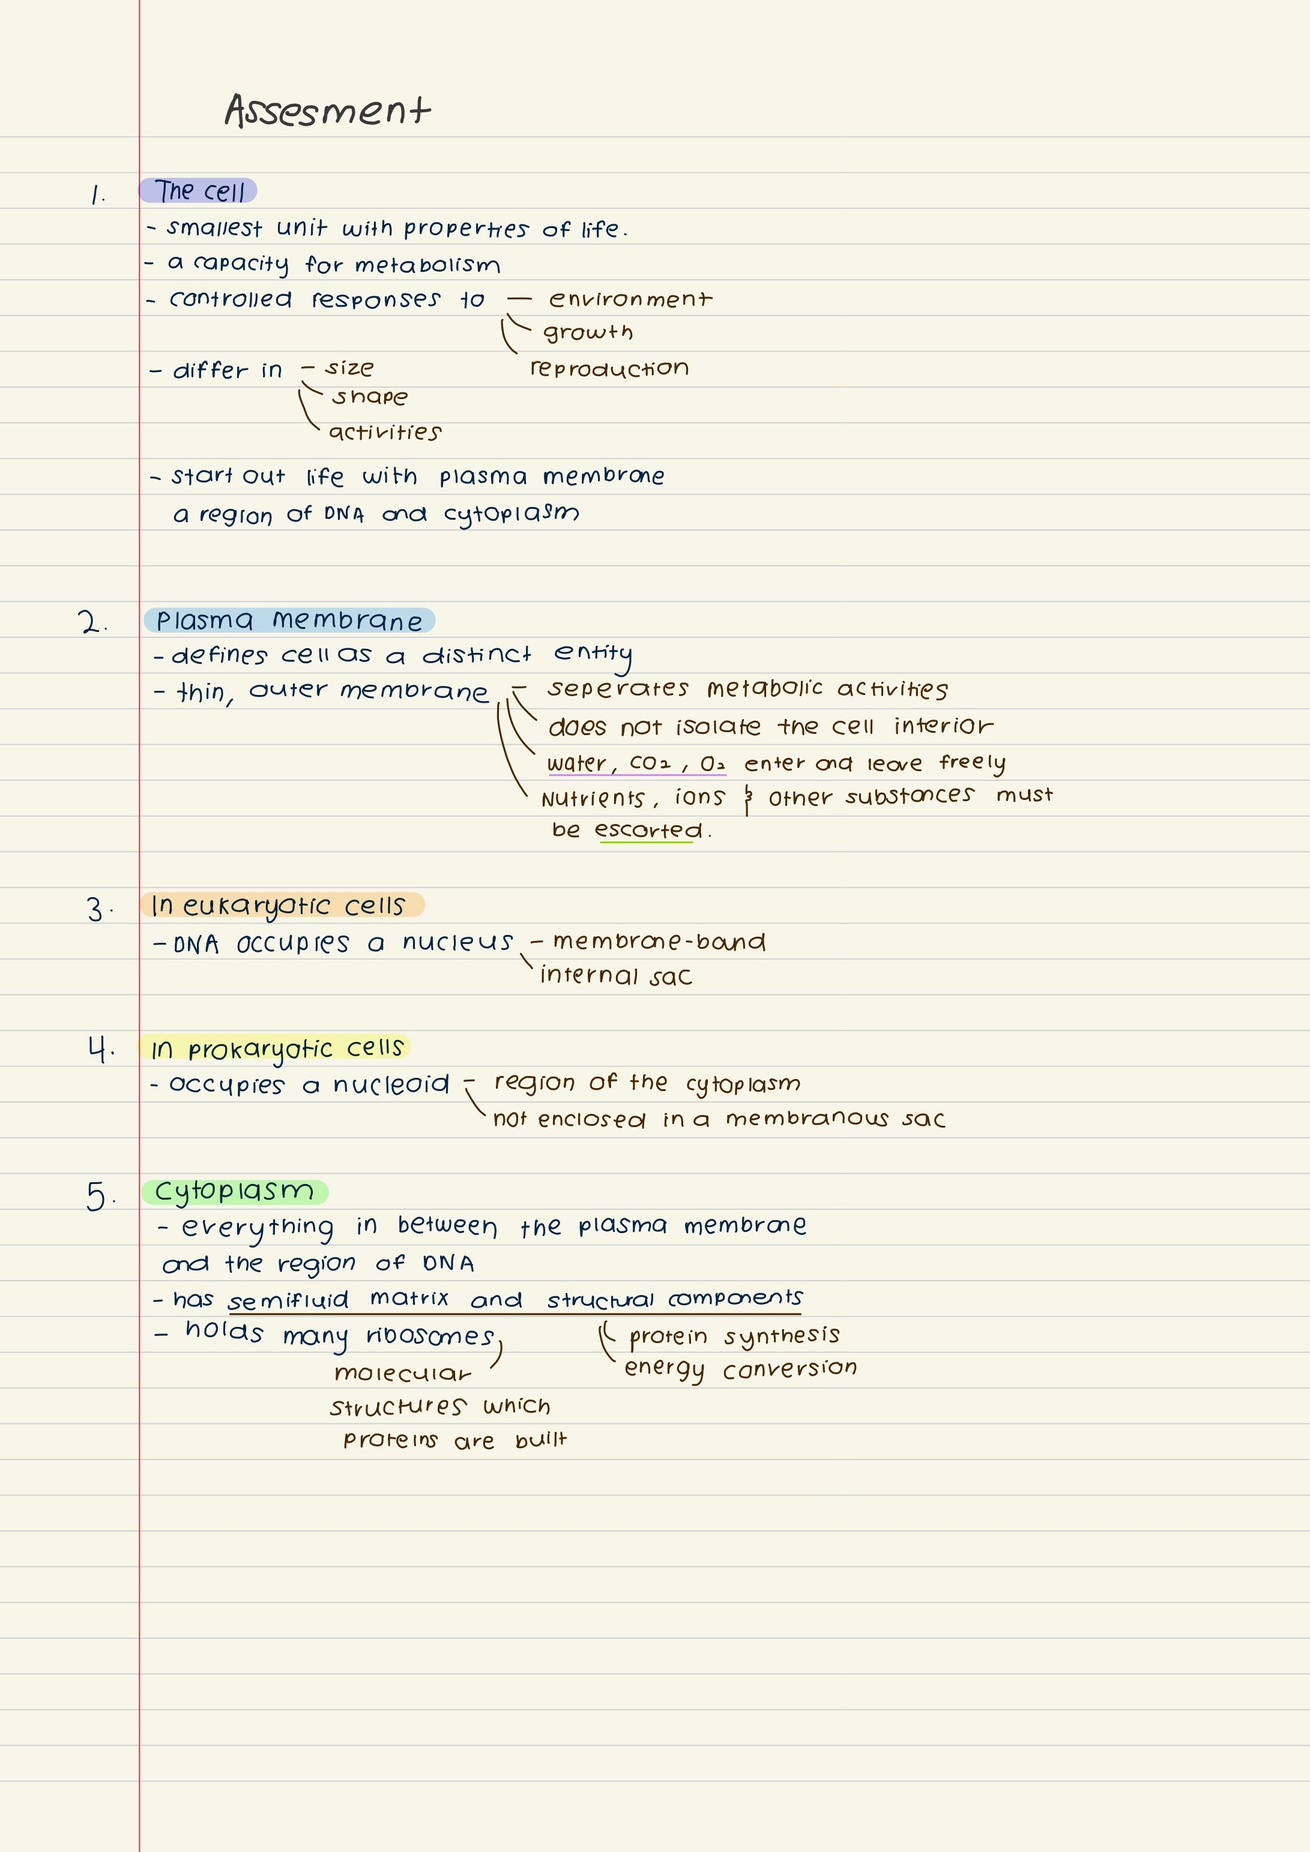 Assesment
1. The cell
- smallest unit with properties of life.
- a capacity for metabolism
- controlled responses to — environment
growth
reproduction
- differ in - size
shape
activities
- start out life with plasma membrane
a region of DNA and cytoplasm
2. Plasma membrane
- defines cell as a distinct entity
- thin, outer membrane - seperates metabolic activities
does not isolate the cell interior
water, CO₂, O₂ enter and leave freely
Nutrients, ions & other substances must
be escorted.
3. In eukaryotic cells
- DNA occupies a nucleus - membrane-bound
internal sac
4. In prokaryotic cells
- occupies a nucleoid - region of the cytoplasm
not enclosed in a membranous sac
5. Cytoplasm
- everything in between the plasma membrane
and the region of DNA
- has semifluid matrix and structural components
- holds many ribosomes
protein synthesis
energy conversion
molecular
structures which
proteins are built